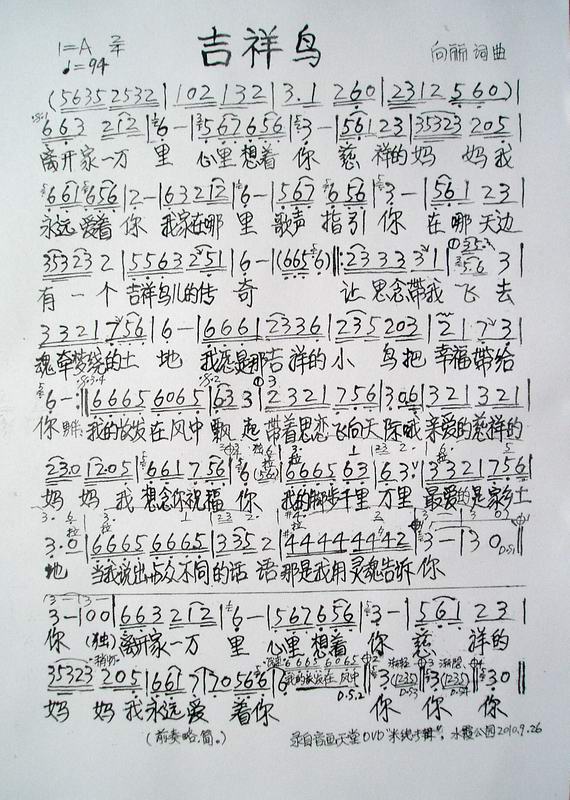 吉祥鸟
1=A 2/4
♩=94
向丽 词曲
(5635 2532 | 102 132 | 3.1 260 | 2312 560)|
663 212 | 6 - | 567656 | 3 - | 561 23 | 35323 205 |
离开家一万 里 心里想着 你 慈 祥的妈 妈我
661 656 | 2 - | 632212 | 6 - | 567 656 | 3 - | 561 23 |
永远爱着 你 我家在哪 里 歌声 指引 你 在哪天边
35323 2 | 55632 251 | 6 - | (6656) ‖: 23333 31 | 5.6 3 |
有一个 吉祥鸟儿的传 奇 让思念带我 飞 去
3321 756 | 6 - | 6661 2336 | 235 203 | 2 1 7 3 |
魂牵梦绕的土 地 我愿是那吉祥的小 鸟把 幸福带给
6 - :‖ 6665 6065 | 633 | 2321 756 | 306 | 321 321 |
你 我的故发在风中 飘起 带着思恋飞向天际哦 亲爱的慈祥的
230 1205 | 661 756 | 6 | 6665 63 | 63 | 3321 756 |
妈妈 我 想念你祝福 你 我的脚步千里 万里 最爱的是家乡土
3.0 | 6665 6665 | 335 2 | 44444 4442 | 3 - | 30 D.S.1
地 当我说出与众不同的话 语 那是我用灵魂告诉 你
3 - | 100 | 663 212 | 6 - | 567656 | 3 - | 561 23 |
你 (独) 离开家一万 里 心里想着 你 慈 祥的
35323 205 | 661 7 | 70565 | 6 6665 6065 D.S.2 | 3 (1235) D.S.3 | 3 (1235) | 30 ‖
妈 妈我永远爱 着你 我的故发在 风中 你 你 你
(前奏略.简.) 录自音画天堂DVD 水霞公园2010.9.26